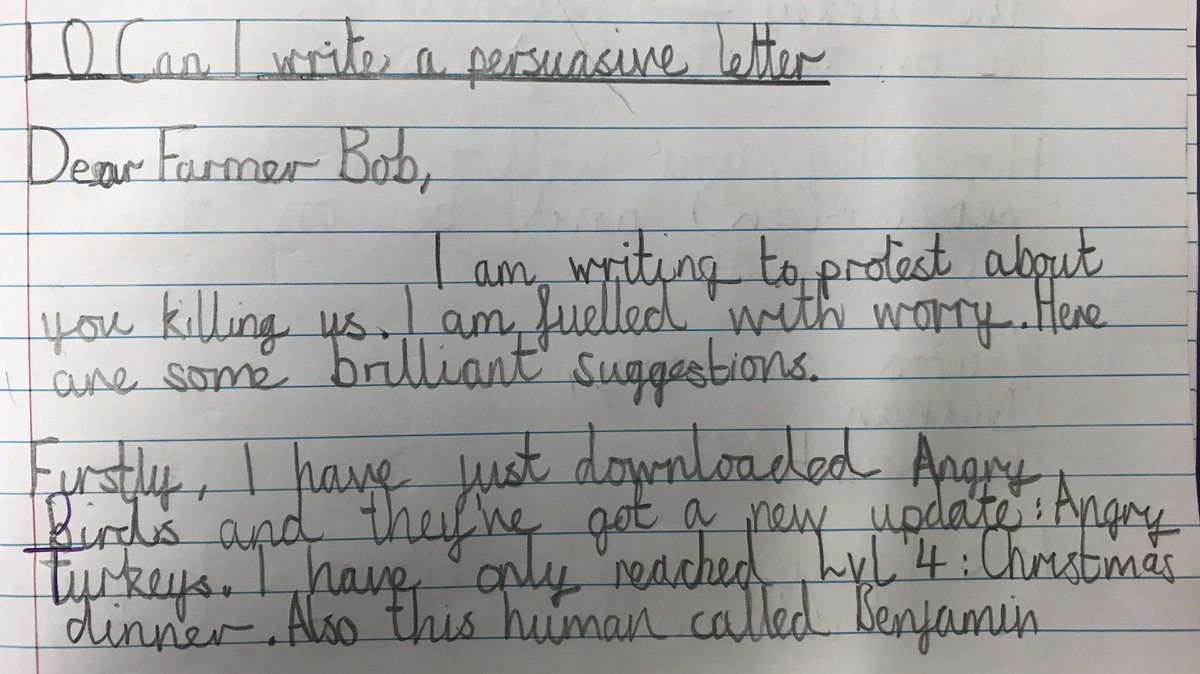 LO Can I write a persuasive letter
Dear Farmer Bob,
I am writing to protest about
you killing us. I am fuelled with worry. Here
are some brilliant suggestions.
Firstly, I have just downloaded Angry
Birds and they've got a new update: Angry
turkeys. I have only reached Lvl 4: Christmas
dinner. Also this human called Benjamin